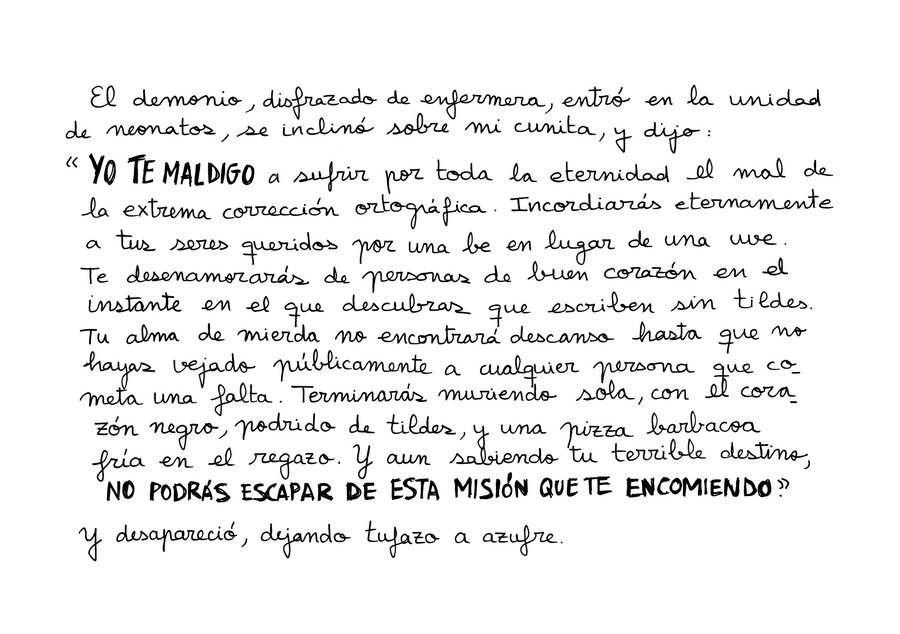 El demonio, disfrazado de enfermera, entró en la unidad
de neonatos, se inclinó sobre mi cunita, y dijo:
“YO TE MALDIGO a sufrir por toda la eternidad el mal de
la extrema corrección ortográfica. Incordiarás eternamente
a tus seres queridos por una be en lugar de una uve.
Te desenamorarás de personas de buen corazón en el
instante en el que descubras que escriben sin tildes.
Tu alma de mierda no encontrará descanso hasta que no
hayas vejado públicamente a cualquier persona que co_
meta una falta. Terminarás muriendo sola, con el cora_
zón negro, podrido de tildes, y una pizza barbacoa
fría en el regazo. Y aun sabiendo tu terrible destino,
NO PODRÁS ESCAPAR DE ESTA MISIÓN QUE TE ENCOMIENDO”
Y desapareció, dejando tufazo a azufre.